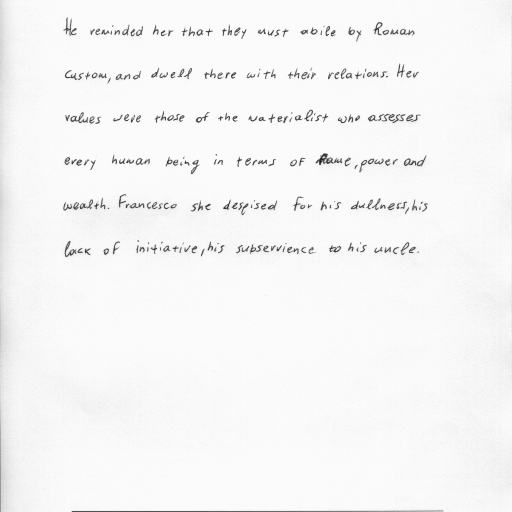 He reminded her that they must abile by Roman
Custom, and dwell there with their relations. Her
values were those of the materialist who assesses
every human being in terms of fame, power and
wealth. Francesco she despised for his dullness, his
lack of initiative, his subservience to his uncle.